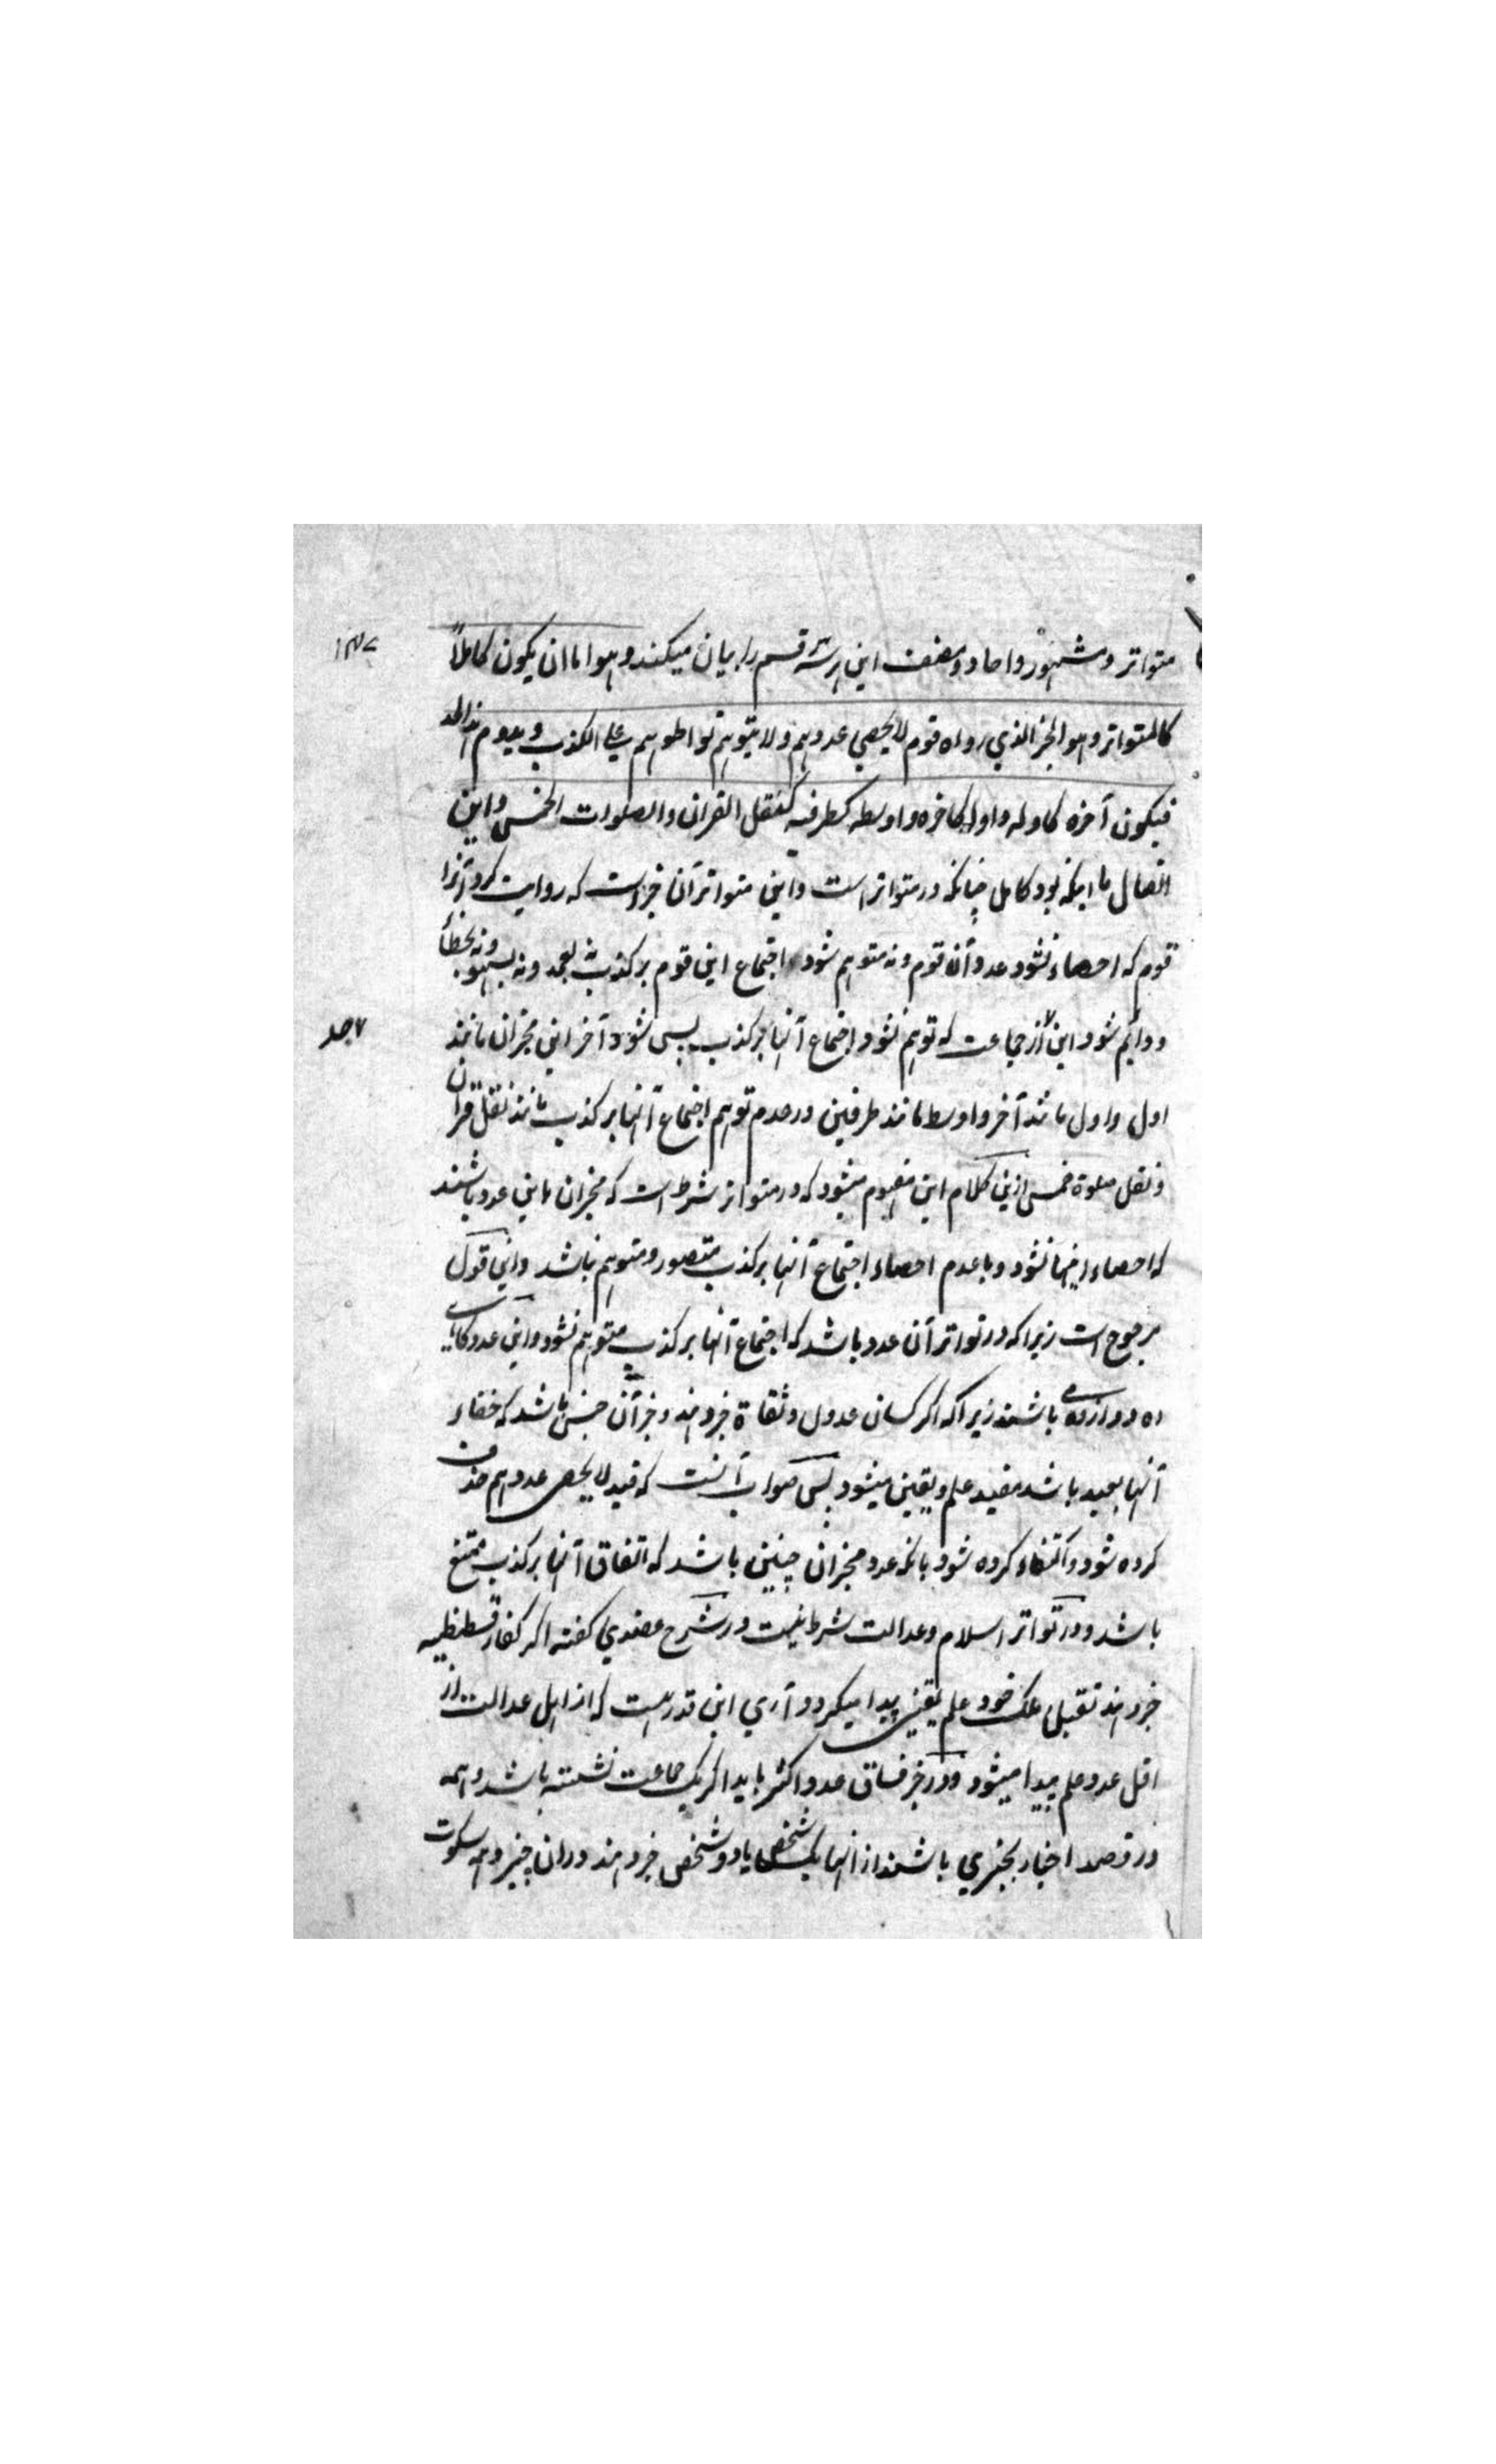 متواتر و مشهور و احاد و مصنف این هر سه قسم را بیان میکند و هو اما ان یکون کاملاً
کالمتواتر و هو الخبر الذي رواه قوم لا یحصي عددهم و لا یتوهم تواطوهم علی الکذب و یدوم هذا الحد
فیکون آخره کاوله و اوله کاخره و اوسطه کطرفیه کنقل القران و الصلوات الخمس و این
اتصال یا اینکه بود کامل چنانکه در متواتر است و این متواتر آن خبر است که روایت کرد آنرا
قوم که احصاء نشود عدد آن قوم و نه متوهم شود اجتماع این قوم بر کذب نه بعمد و نه بسهو و نه بخطأ
و دایم شود این از جماعت که توهم نشود اجتماع آنها بر کذب پس شود آخر این مخبران مانند
اول و اول مانند آخر و اوسط مانند طرفین در عدم توهم اجتماع آنها بر کذب مانند نقل قران
و نقل صلوة خمس ازین کلام این مفهوم میشود که در متواتر شرط است که مخبران باین عدد باشند
که احصاء اینها نشود و با عدم احصاء اجتماع آنها بر کذب متصور و متوهم نباشد و این قول
مرجوح است زیرا که در تواتر آن عدد باشد که اجتماع آنها بر کذب متوهم نشود و این عدد کاهی
ده دوازده باشند زیرا که اکر کسان عدول و ثقاة خبر دهند و خبر آن چنین باشد که خفاء
آنها بعید باشد مفید علم و یقین میشود پس صواب آنست که قید لا یحصی عددهم حذف
کرده شود و اکتفاء کرده شود بانکه عدد مخبران چنین باشد که اتفاق آنها بر کذب ممتنع
باشد و در تواتر اسلام و عدالت شرط نیست در شرح عضدي کفته اکر کفار قسطنطیه
خبر دهند بقتل ملک خود علم یقینی پیدا میکردد آري این قدر هست که از اهل عدالت از
اقل عدد علم پیدا میشود و در خبر فساق عدد اکثر باید اکر یک جماعت نشسته باشد و همه
در قصد اخبار بخبري باشند از انها یک شخص یا دو شخص خبر دهند دران چیز و همه سکوت